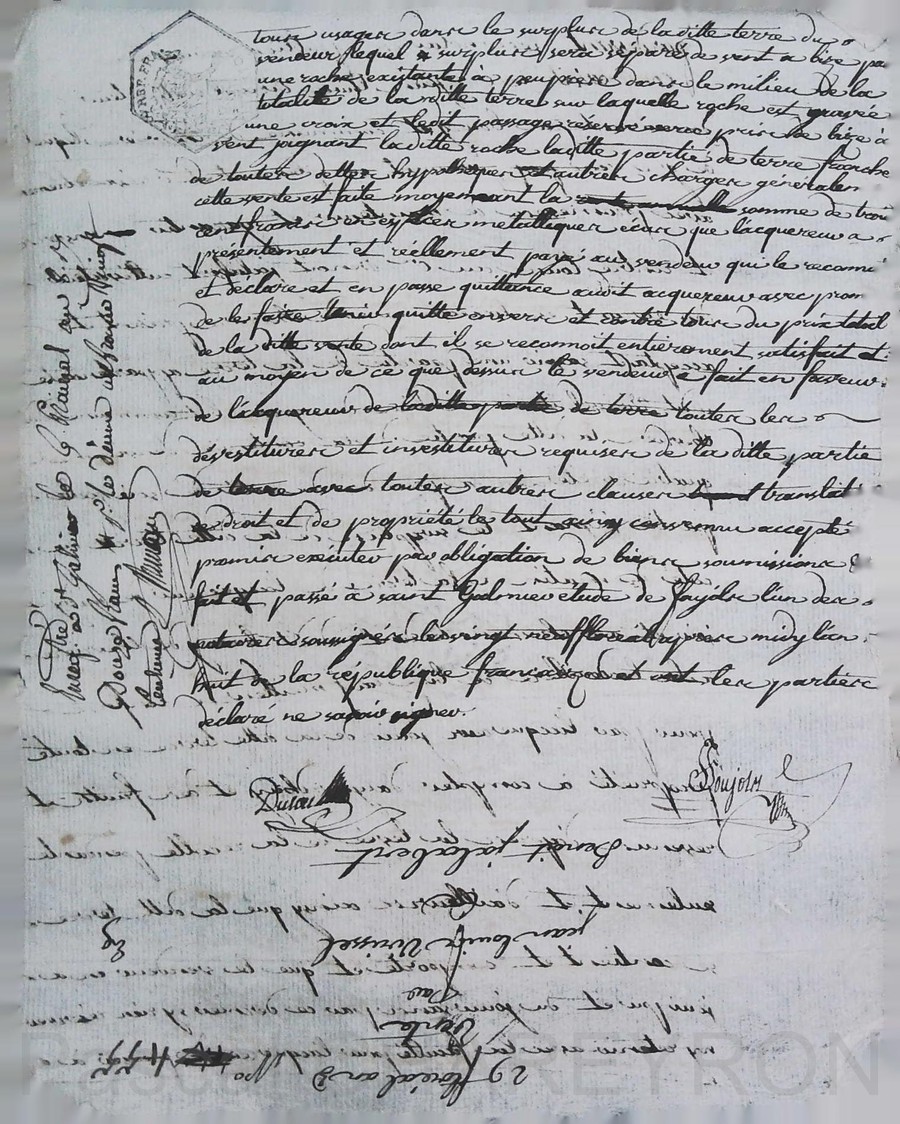 tous usages dans le surplus de la ditte terre du
vendeur lequel surplus sera séparé de vent a bise pa
une roche existante à peuprès dans le milieu de la
totalité de la ditte terre sur laquelle roche est gravée
une croix et ledit passage réservé sera pris de bise à
vent joignant la ditte roche laditte partie de terre franche
de toutes dettes hypotheques et autres charges générales
cette vente est faite moyennant la somme de trois
cent francs en espèces métalliques écus que l'acquereur a
présentement et réellement payé au vendeur qui le reconn
et déclare et en passe quittance audit acquereur avec prom
de les faire tenir quitte envers et contre tous du prix total
de la ditte vente dont il se reconnoit entièrement satisfait et
au moyen de ce que dessus le vendeur a fait en faveur
de l'acquereur de laditte partie de terre toutes les
dévestitures et investitures requises de la ditte partie
de terre avec toutes autres clauses translat
de droit et de propriété le tout ainsy convenu accepté
promis exécuter par obligation de biens soumissions &
fait et passé à saint Galmier etude de Soujols l'un des
notaires soussignés le vingt neuf floreal après midy l'an
huit de la république française et les parties
déclaré ne savoir signer.
Enreg. à St Galmier le 9 Prairial an 8
Douze francs p.r le dixieme un franc vingt
centimes
Soujols
Benoit jalabert
jean louis Virissel
Vente
29 floréal an 8
REYRON